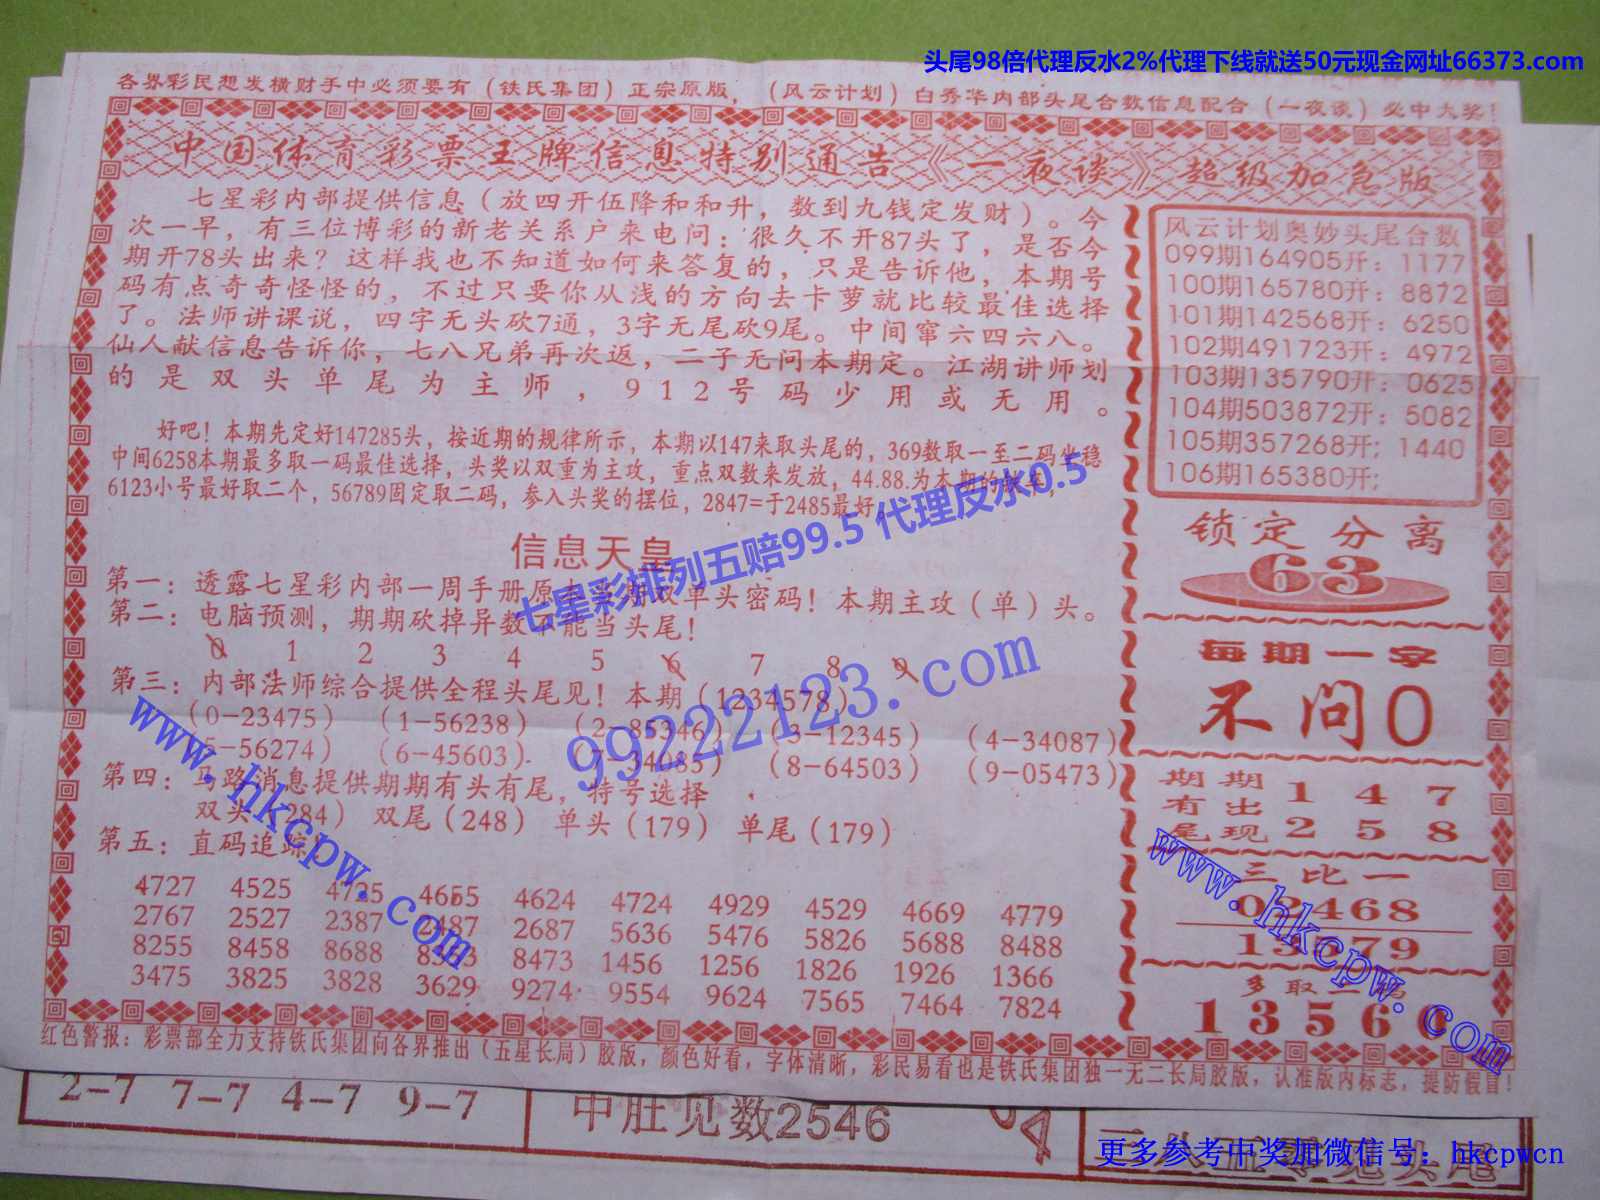 头尾98倍代理反水2%代理下线就送50元现金网址66373.com
各界彩民想发横财手中必须要有（铁氏集团）正宗原版，（风云计划）白秀华内部头尾合数信息配合（一夜谈）必中大奖！
中国体育彩票王牌信息特别通告《一夜谈》超级加急版
七星彩内部提供信息（放四开伍降和和升，数到九钱定发财）。今
次一早，有三位博彩的新老关系户来电问：很久不开87头了，是否今
期开78头出来？这样我也不知道如何来答复的，只是告诉他，本期号
码有点奇奇怪怪的，不过只要你从浅的方向去卡萝就比较最佳选择
了。法师讲课说，四字无头砍7通，3字无尾砍9尾。中间窜六四六八。
仙人献信息告诉你，七八兄弟再次返，二子无问本期定。江湖讲师划
的是双头单尾为主师，912号码少用或无用。
好吧！本期先定好147285头，按近期的规律所示，本期以147来取头尾的，369数取一至二码坐稳
中间6258本期最多取一码最佳选择，头奖以双重为主攻，重点双数来发放，44.88.为本期的
6123小号最好取二个，56789固定取二码，参入头奖的摆位，2847=于2485最好。
信息天皇
七星彩排列五赔99.5 代理反水0.5
第一：透露七星彩内部一周手册原本 单头密码！本期主攻（单）头。
第二：电脑预测，期期砍掉异数不能当头尾！
0 1 2 3 4 5 6 7 8 9
第三：内部法师综合提供全程头尾见！本期（1234578）
（0-23475） （1-56238） （2-85346） （3-12345） （4-34087）
5-56274） （6-45603） （7-34085） （8-64503） （9-05473）
99222123.com
第四：马路消息提供期期有头有尾，特号选择
双头（284） 双尾（248） 单头（179） 单尾（179）
第五：直码追踪
www.hkcpw.com
4727 4525 4725 4655 4624 4724 4929 4529 4669 4779
2767 2527 2387 2487 2687 5636 5476 5826 5688 8488
8255 8458 8688 8473 1456 1256 1826 1926 1366
3475 3825 3828 3629 9274 9554 9624 7565 7464 7824
风云计划奥妙头尾合数
099期164905开：1177
100期165780开：8872
101期142568开：6250
102期491723开：4972
103期135790开：0625
104期503872开：5082
105期357268开；1440
106期165380开；
锁定分离
63
每期一字
不问0
期期 1 4 7
有出
尾现 2 5 8
三比一
02468
13579
www.hkcpw.com
多取二码
13560
红色警报：彩票部全力支持铁氏集团向各界推出（五星长局）胶版，颜色好看，字体清晰，彩民易看也是铁氏集团独一无二长局胶版，认准版内标志，提防假冒！
2-7 7-7 4-7 9-7
中肚见数2546
更多参考中奖加微信号：hkcpwcn